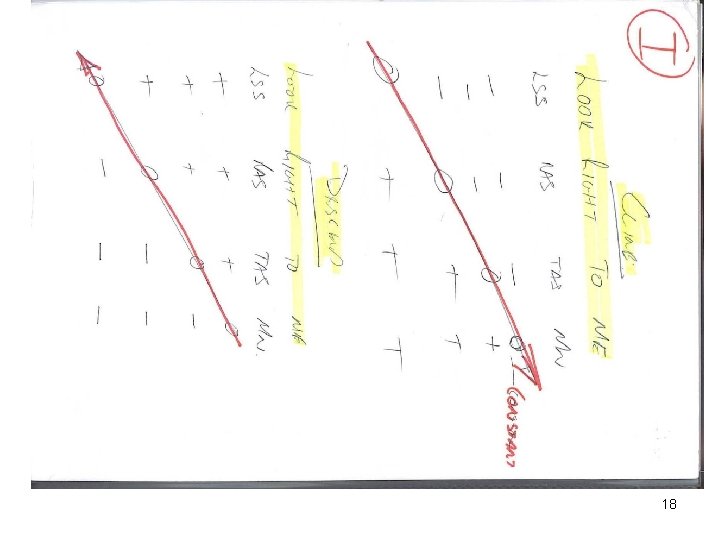 I
CLIMB
LOOK RIGHT TO ME
LSS RAS TAS MN
− − − 0 CONSTANT
− − 0 +
− 0 + +
0 + + +
DESCEND
LOOK RIGHT TO ME
LSS RAS TAS MN.
+ + + 0
+ + 0 −
+ 0 − −
0 − − −
18